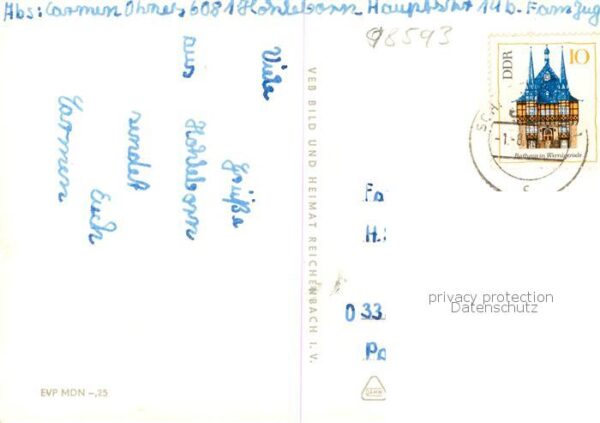 Abs: Carmen Ohner, 6081 Hohleborn Hauptstr 14b.
98593
DDR
10
Rathaus in Wernigerode
Viele
Grüße
aus Hohleborn
sendet
Euch
Carmen
VEB BILD UND HEIMAT REICHENBACH I. V.
Fa
H.
0 33
Po
privacy protection
Datenschutz
EVP MDN -,25